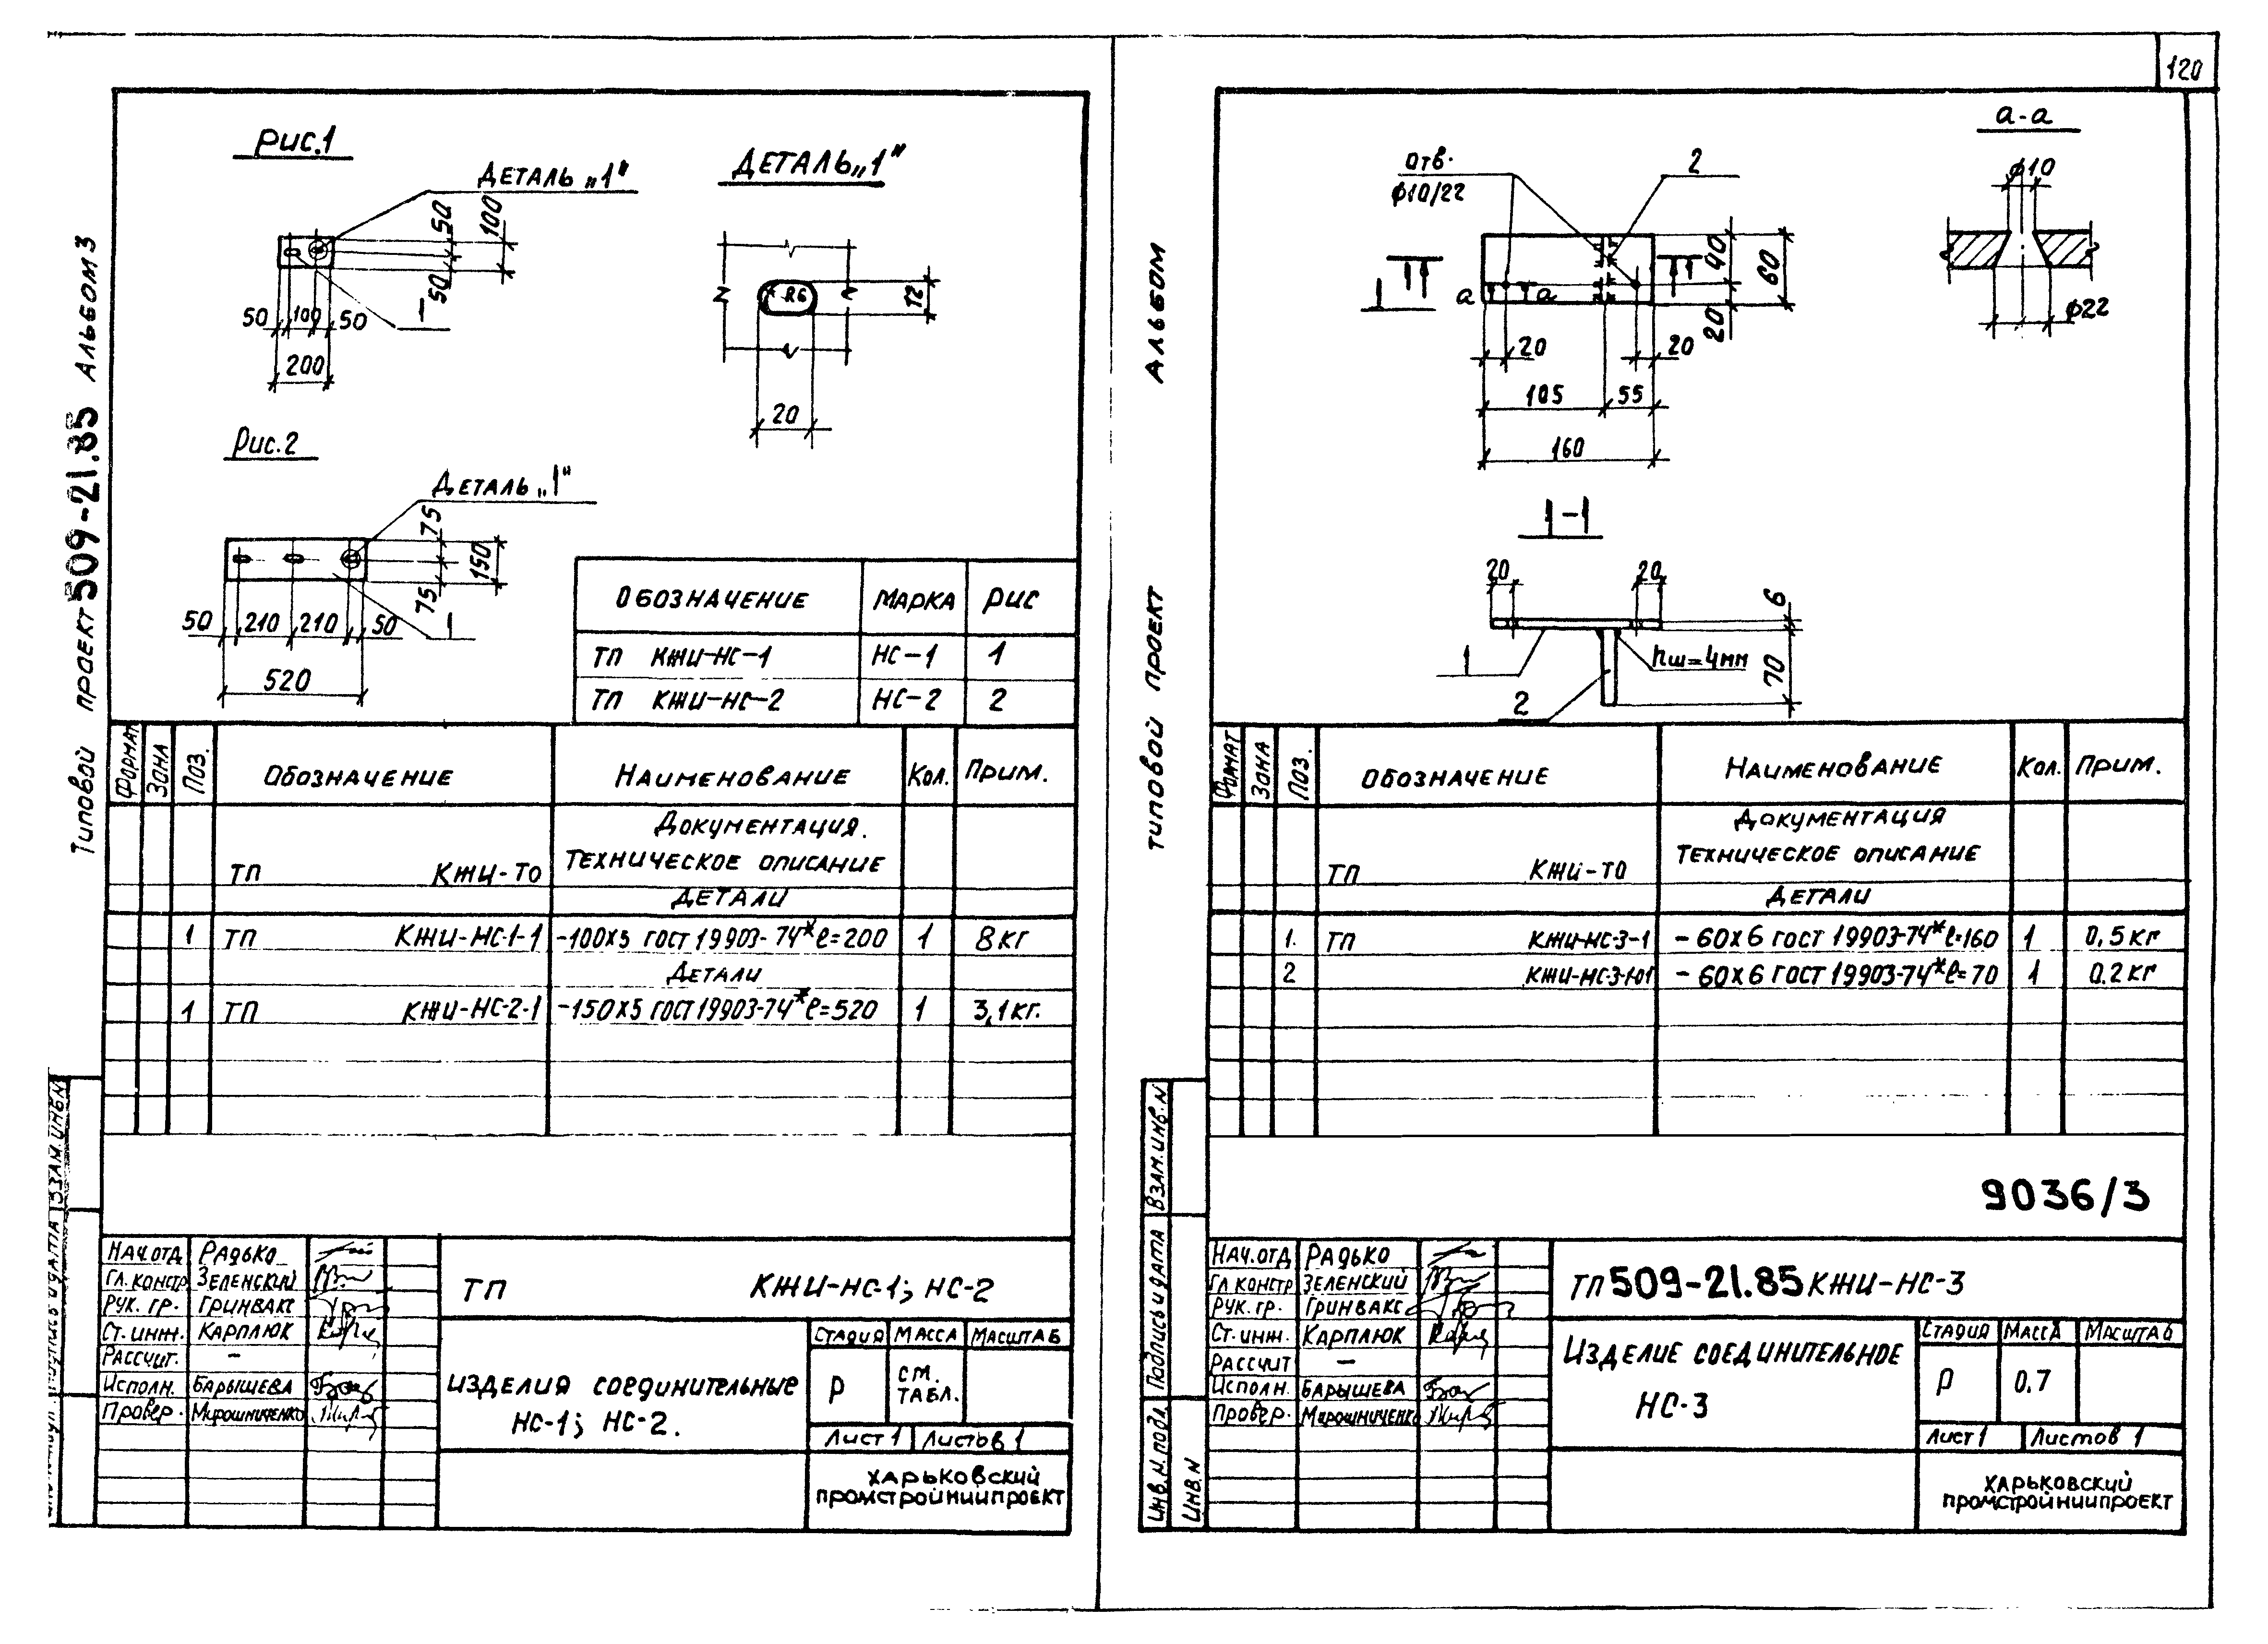 120
Типовой проект 509-21.85 Альбом 3
Рис.1
Деталь „1"
50
100
50
50
100
50
1
200
Деталь „1"
R6
12
20
Рис.2
Деталь „1"
75
150
75
50
210
210
50
1
520
Обозначение Марка Рис
ТП КЖИ-НС-1 НС-1 1
ТП КЖИ-НС-2 НС-2 2
Формат Зона Поз. Обозначение Наименование Кол. Прим.
Документация.
ТП КЖИ-ТО Техническое описание
Детали
1 ТП КЖИ-НС-1-1 -100х5 ГОСТ 19903-74* ℓ=200 1 8кг
Детали
1 ТП КЖИ-НС-2-1 -150х5 ГОСТ 19903-74* ℓ=520 1 3,1кг.
Взам.инв.N
Нач.отд Радько
Гл.констр Зеленский
Рук. гр. Гринвакс
Ст.инж. Карплюк
Рассчит. –
Исполн. Барышева
Провер. Мирошниченко
ТП КЖИ-НС-1; НС-2
Изделия соединительные
НС-1; НС-2.
Стадия Масса Масштаб
Р см. табл.
Лист 1 Листов 1
Харьковский
промстройниипроект
Типовой проект Альбом
Отв.
ф10/22
2
1
1
1
а а
40
60
20
20
20
105
55
160
а-а
ф10
ф22
1-1
20
20
6
70
1
hш=4мм
2
Формат Зона Поз. Обозначение Наименование Кол. Прим.
Документация
ТП КЖИ-ТО Техническое описание
Детали
1. ТП КЖИ-НС-3-1 - 60х6 ГОСТ 19903-74* ℓ=160 1 0,5кг
2 КЖИ-НС-3-1-01 - 60х6 ГОСТ 19903-74* ℓ=70 1 0.2кг
9036/3
Инв.N.подл. Подпись и дата Взам.инв.N
Инв.N
Нач.отд Радько
Гл констр Зеленский
Рук. гр. Гринвакс
Ст.инж. Карплюк
Рассчит –
Исполн. Барышева
Провер. Мирошниченко
ТП 509-21.85 КЖИ-НС-3
Изделие соединительное
НС-3
Стадия Масса Масштаб
Р 0.7
Лист 1 Листов 1
Харьковский
промстройниипроект